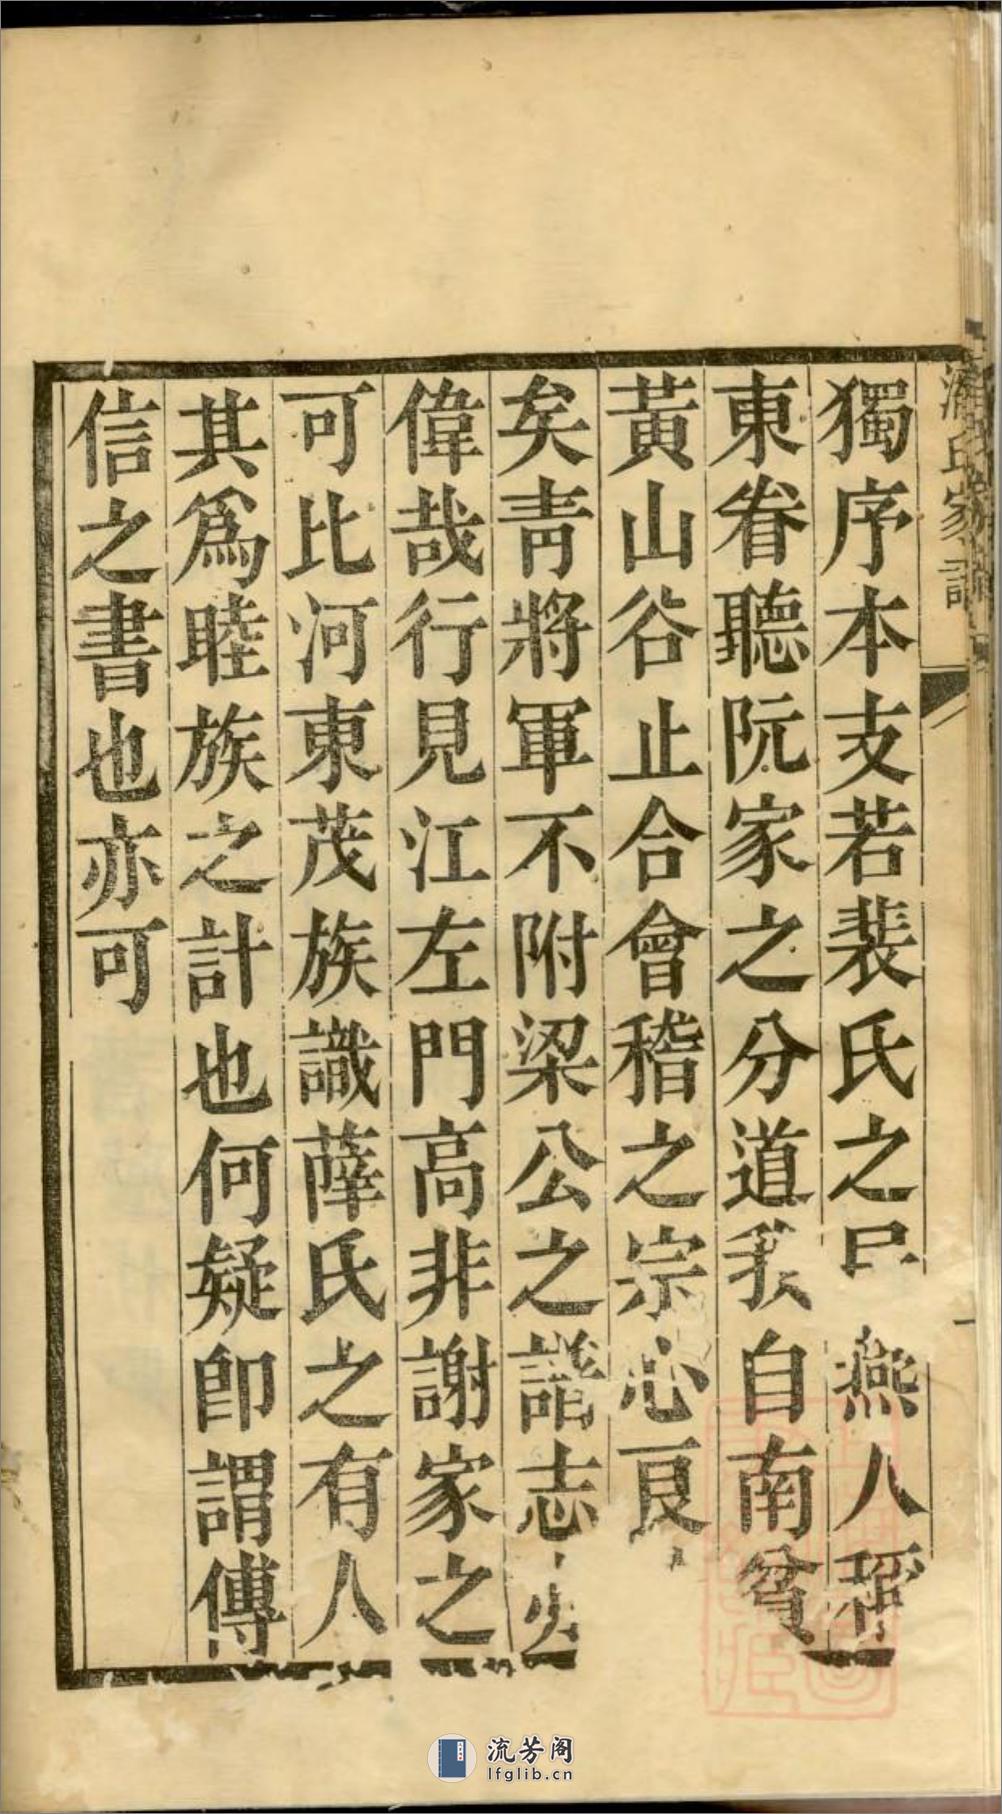 潘氏家譜
獨序本支若裴氏之 燕人稱
東眷聽阮家之分道我自南貧
黃山谷止合會稽之宗心良
矣靑將軍不附梁公之譜志
偉哉行見江左門高非謝家之
可比河東茂族識薛氏之有人
其爲睦族之計也何疑卽謂傳
信之書也亦可
流芳阁
lfglib.cn